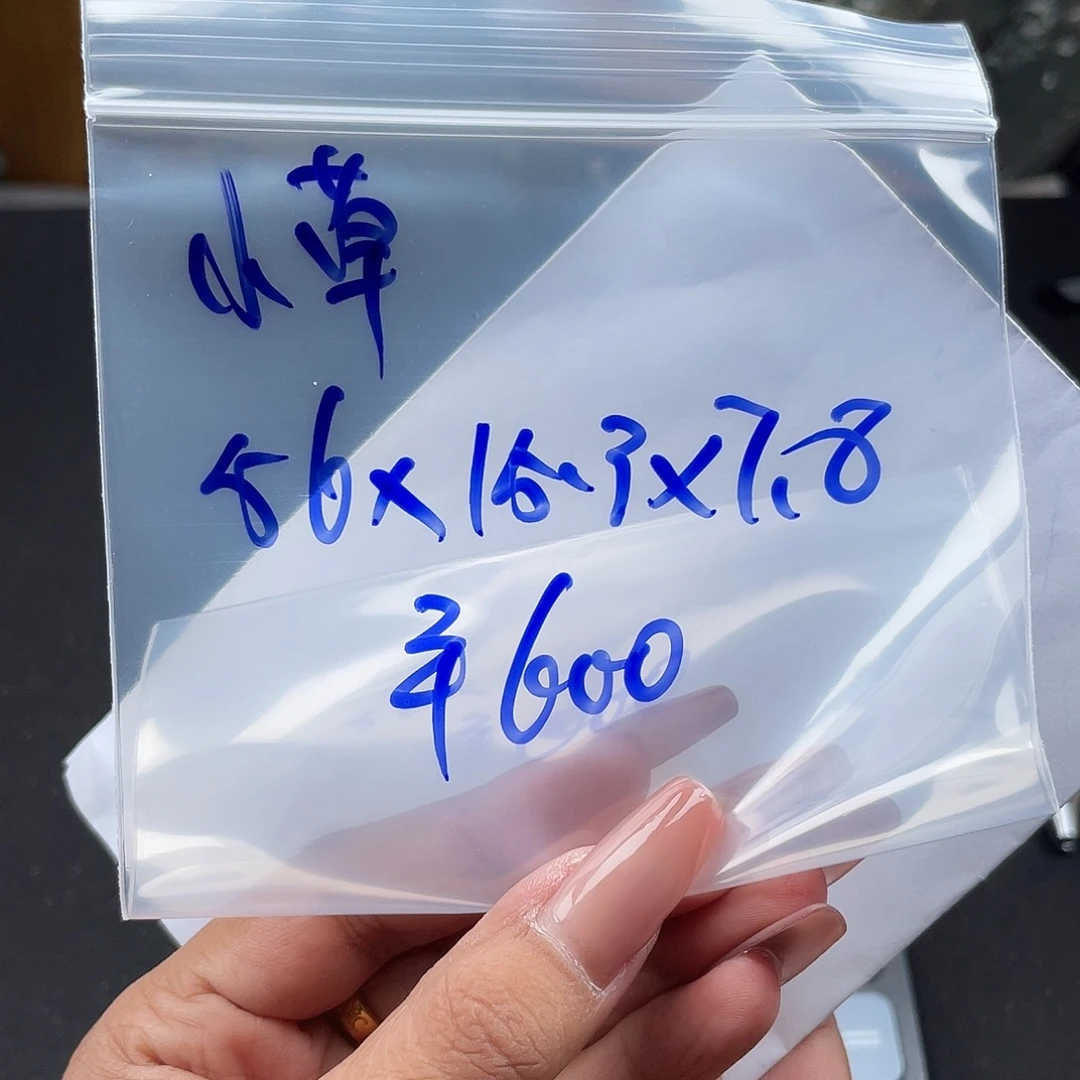 水草
56×15.3×7.8
¥600